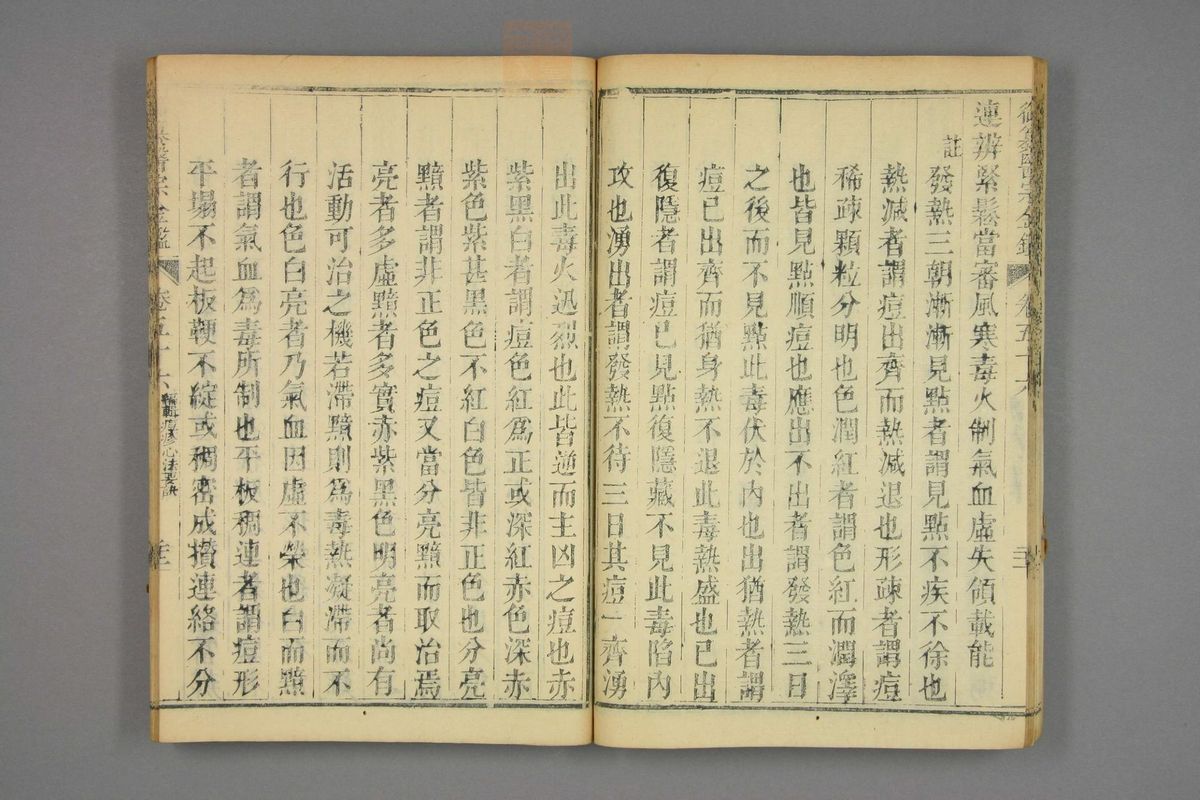 連辨緊鬆當審風寒毒火制氣血虛失領載能
註
發熱三朝漸漸見點者謂見點不疾不徐也
熱減者謂痘出齊而熱減退也形疎者謂痘
稀疎顆粒分明也色潤紅者謂色紅而潤澤
也皆見點順痘也應出不出者謂發熱三日
之後而不見點此毒伏於內也出猶熱者謂
痘已出齊而猶身熱不退此毒熱盛也已出
復隱者謂痘已見點復隱藏不見此毒陷內
攻也湧出者謂發熱不待三日其痘一齊湧
出此毒火迅烈也此皆逆而主凶之痘也赤
紫黑白者謂痘色紅爲正或深紅赤色深赤
紫色紫甚黑色不紅白色皆非正色也分亮
黯者謂非正色之痘又當分亮黯而取治焉
亮者多虛黯者多實赤紫黑色明亮者尚有
活動可治之機若滯黯則爲毒熱凝滯而不
行也色白亮者乃氣血因虛不榮也白而黯
者謂氣血爲毒所制也平板稠連者謂痘形
平塌不起板鞕不綻或稠密成攢連絡不分
卷五十六